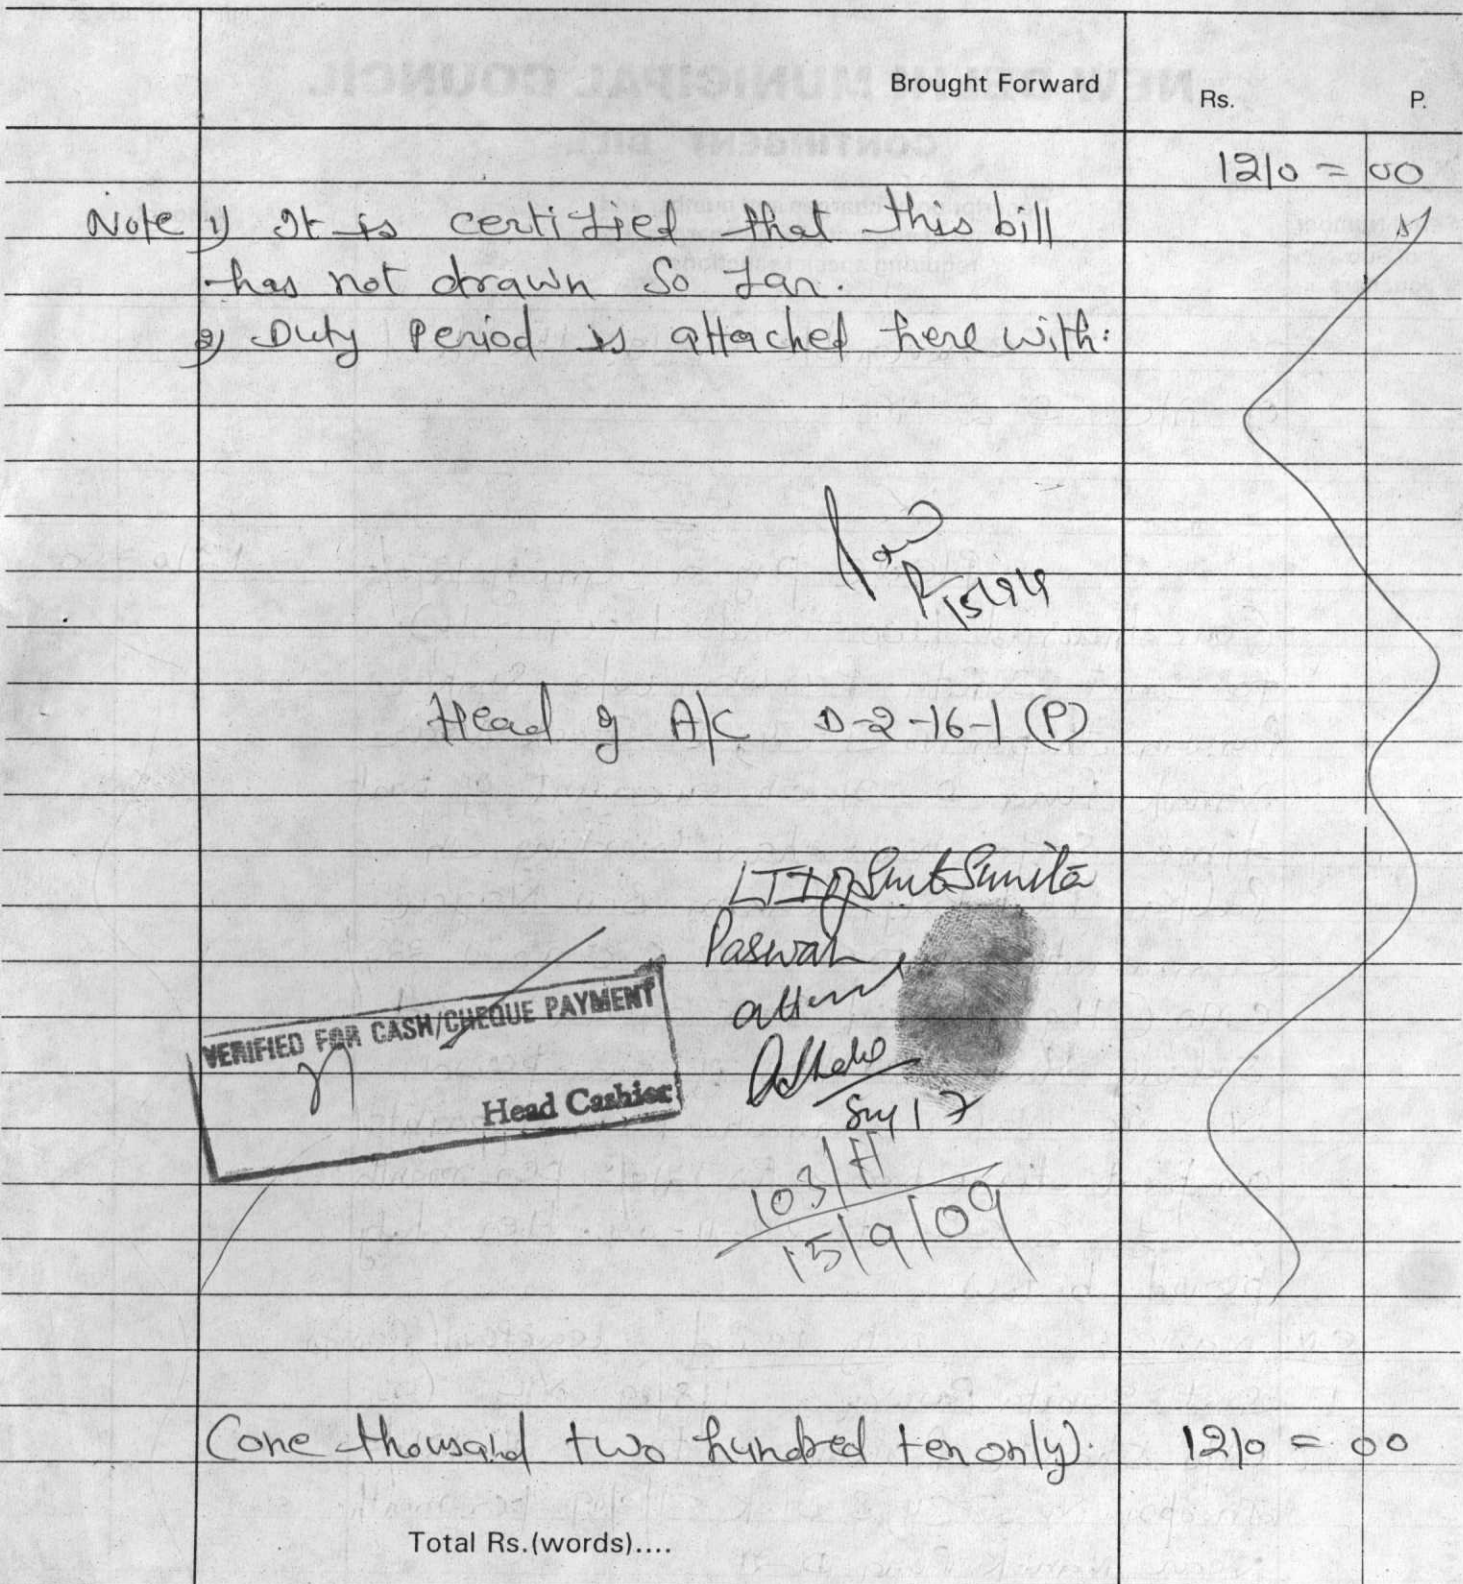 Brought Forward Rs. P.
1210 = 00
Note 1) It is certified that this bill
has not drawn so far.
2) Duty Period is attached here with:
15/9/9
Head of A/C D-2-16-1 (P)
LTI of Smt Sunita
Paswan
VERIFIED FOR CASH/CHEQUE PAYMENT
Head Cashier
103/H
15/9/09
(one thousand two hundred ten only). 1210 = 00
Total Rs.(words)....